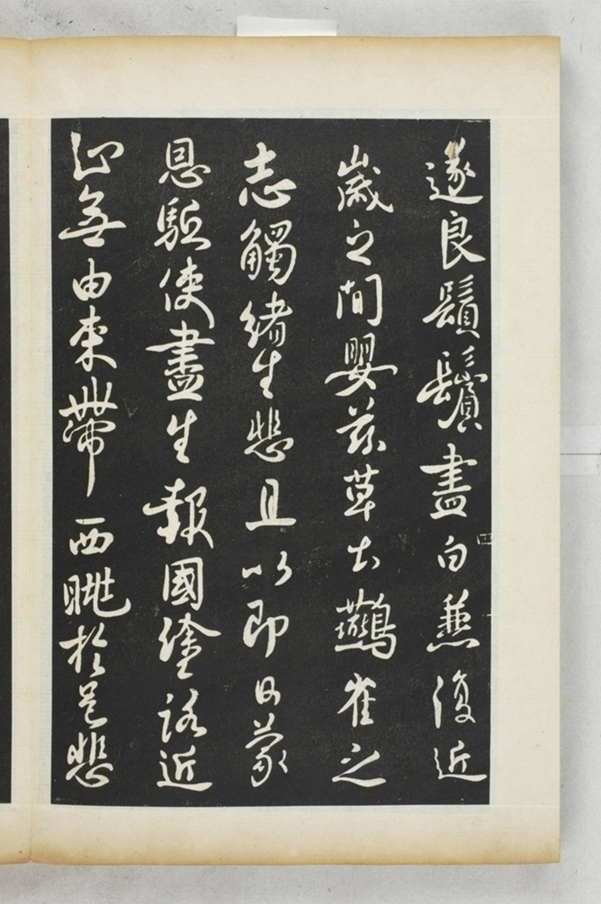 遂良鬚鬢盡白兼復近
歲之間嬰茲草土鷰雀之
志觸緒生悲且以即日蒙
恩駈使盡生報國塗路近
止無由束帶西眺於邑悲
四